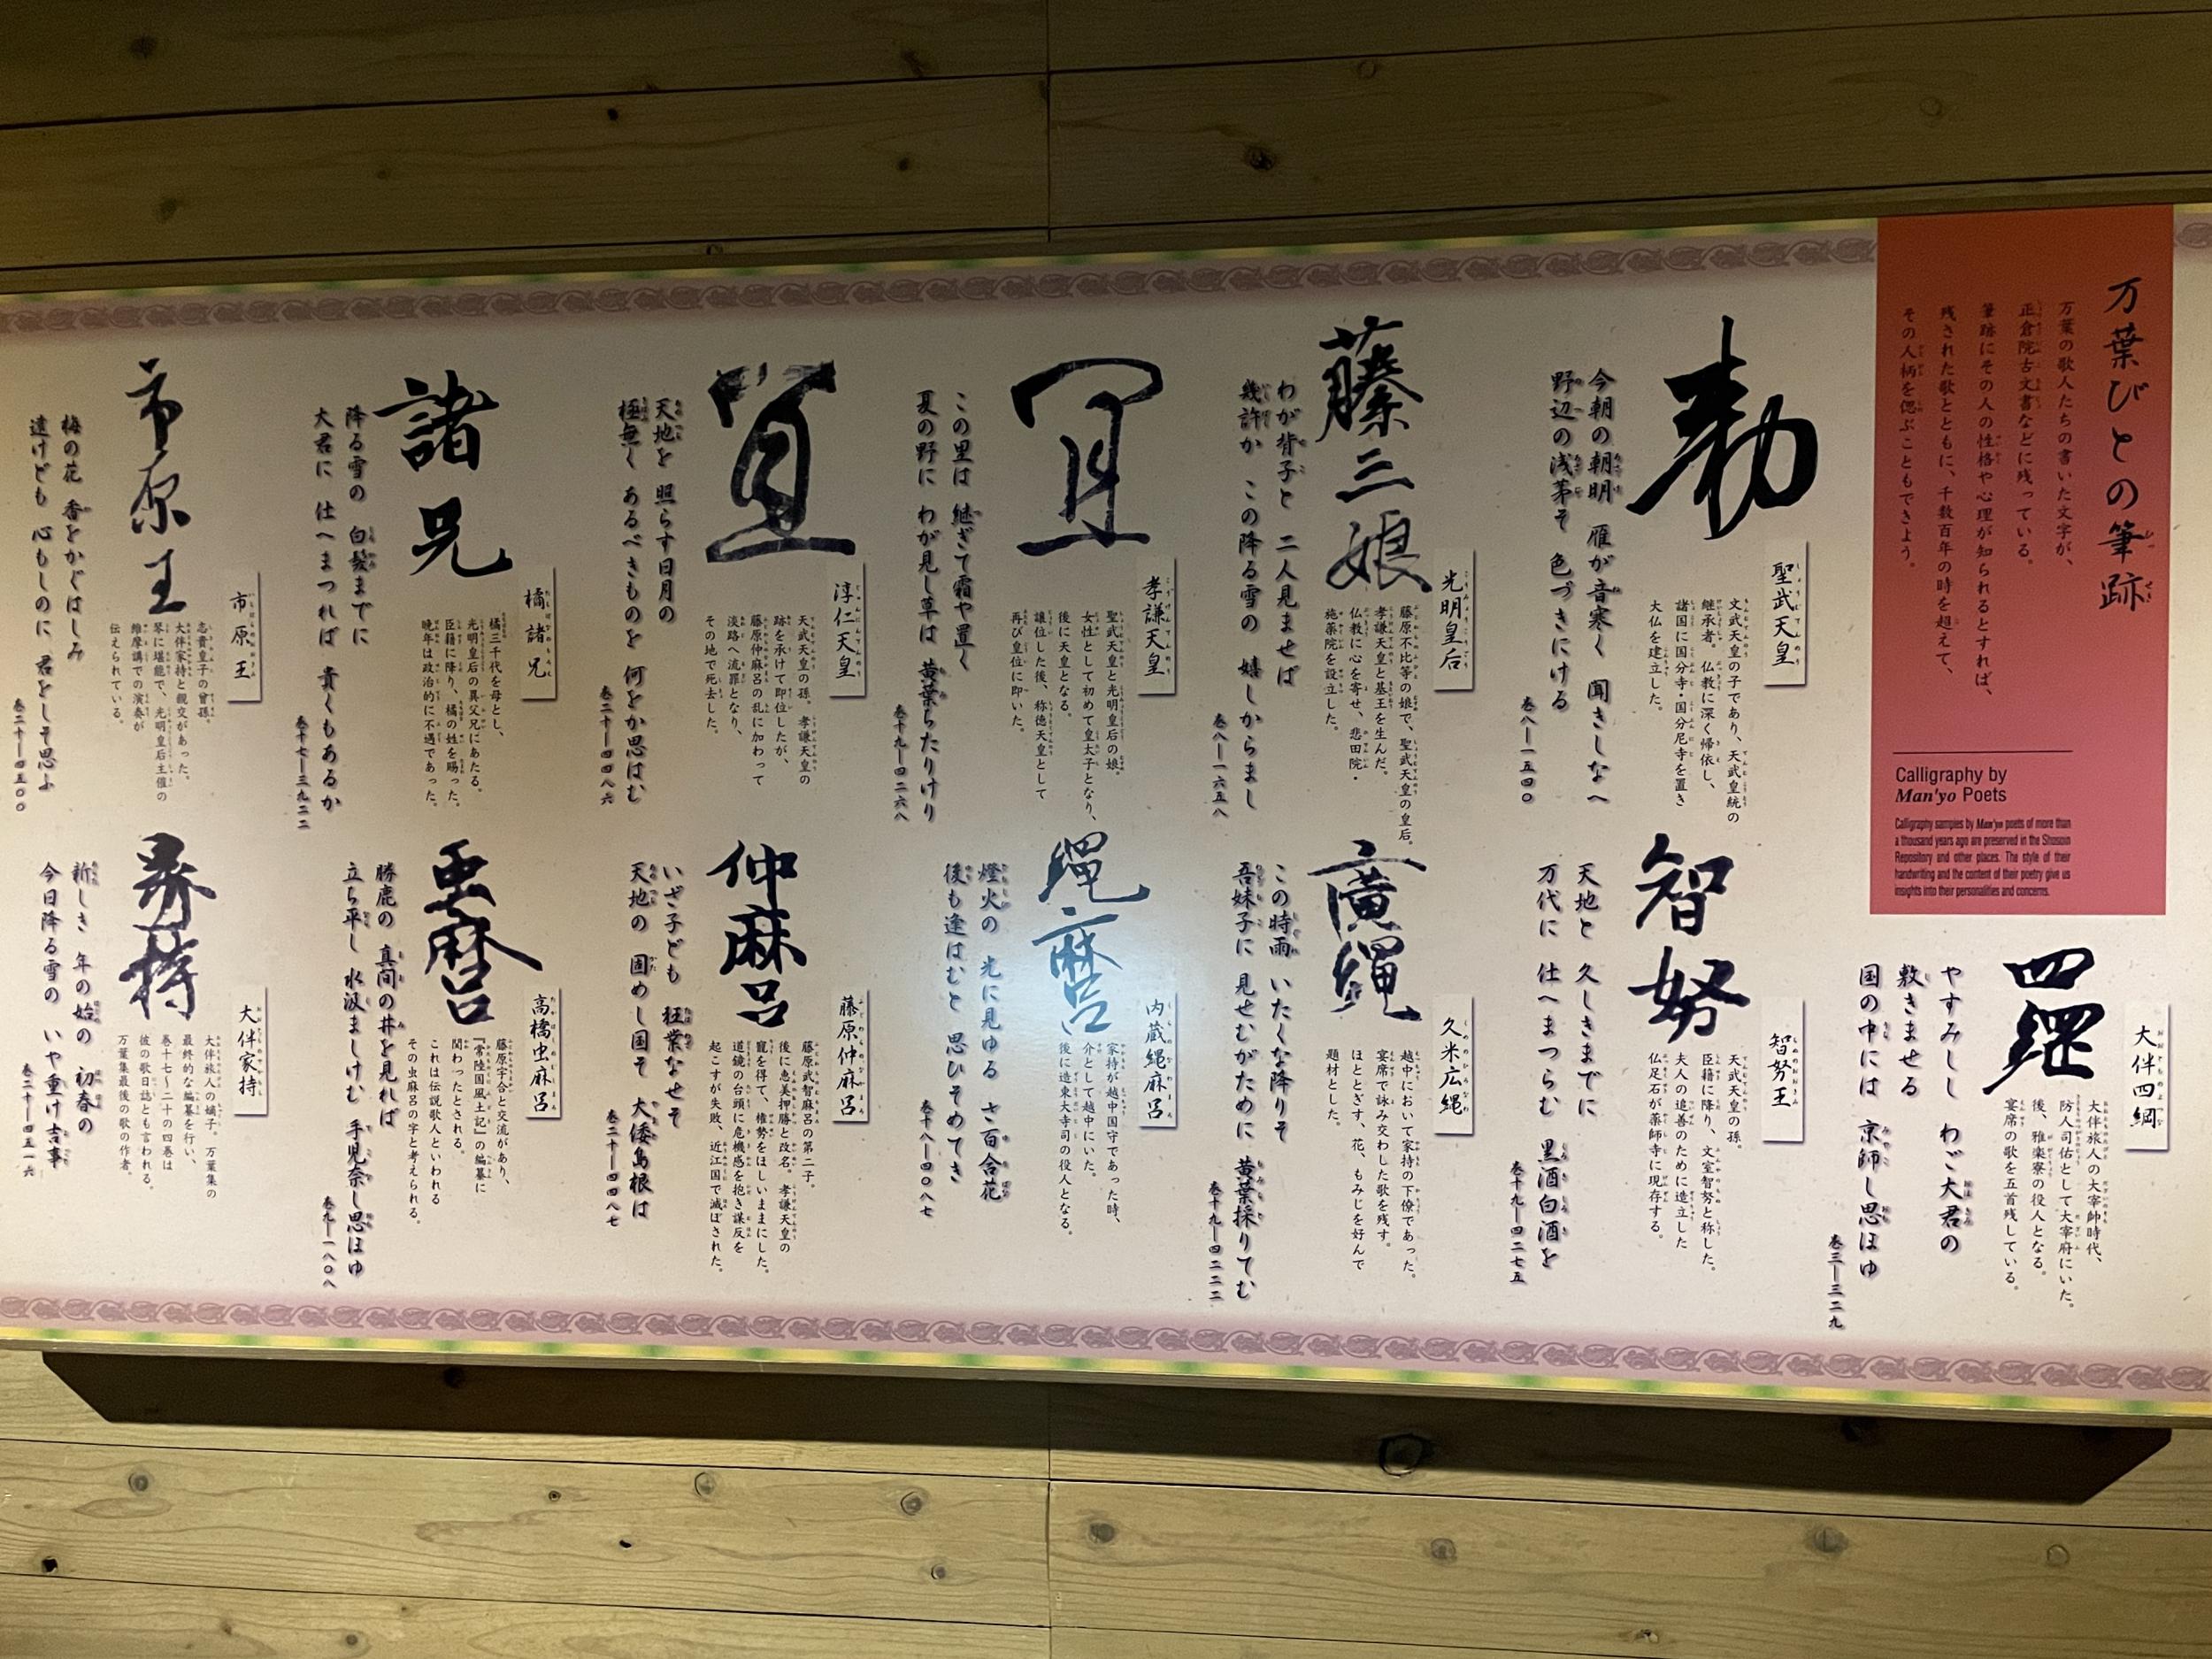 万葉びとの筆跡
万葉の歌人たちの書いた文字が、
正倉院古文書などに残っている。
筆跡にその人の性格や心理が知られるとすれば、
残された歌とともに、千数百年の時を超えて、
その人柄を偲ぶこともできよう。
Calligraphy by
Man'yo Poets
Calligraphy samples by Man'yo poets of more than
a thousand years ago are preserved in the Shosoin
Repository and other places. The style of their
handwriting and the content of their poetry give us
insights into their personalities and concerns.
勅
聖武天皇
文武天皇の子であり、天武皇統の
継承者。仏教に深く帰依し、
諸国に国分寺・国分尼寺を置き
大仏を建立した。
今朝の朝明 雁が音寒く 聞きしなへ
野辺の浅茅そ 色づきにける
巻八―一五四〇
藤三娘
光明皇后
藤原不比等の娘で、聖武天皇の皇后。
孝謙天皇と基王を生んだ。
仏教に心を寄せ、悲田院・
施薬院を設立した。
わが背子と 二人見ませば
幾許か この降る雪の 嬉しからまし
巻八―一六五八
宜
孝謙天皇
聖武天皇と光明皇后の娘。
女性として初めて皇太子となり、
後に天皇となる。
譲位した後、称徳天皇として
再び皇位に即いた。
この里は 継ぎて霜や置く
夏の野に わが見し草は 黄葉ちたりけり
巻十九―四二六八
淳仁天皇
天武天皇の孫。孝謙天皇の
跡を承けて即位したが、
藤原仲麻呂の乱に加わって
淡路へ流罪となり、
その地で死去した。
天地を 照らす日月の
極無く あるべきものを 何をか思はむ
巻二十―四四八六
諸兄
橘諸兄
橘三千代を母とし、
光明皇后の異父兄にあたる。
臣籍に降り、橘の姓を賜った。
晩年は政治的に不遇であった。
降る雪の 白髪までに
大君に 仕へまつれば 貴くもあるか
巻十七―三九二二
市原王
市原王
志貴皇子の曾孫。
大伴家持と親交があった。
琴に堪能で、光明皇后主催の
維摩講での演奏が
伝えられている。
梅の花 香をかぐはしみ
遠けども 心もしのに 君をしそ思ふ
巻二十―四五〇〇
四綱
大伴四綱
大伴旅人の大宰帥時代、
防人司佑として大宰府にいた。
後、雅楽寮の役人となる。
宴席の歌を五首残している。
やすみしし わご大君の
敷きませる
国の中には 京師し思ほゆ
巻三―三二九
智努
智努王
天武天皇の孫。
臣籍に降り、文室智努と称した。
夫人の追善のために造立した
仏足石が薬師寺に現存する。
天地と 久しきまでに
万代に 仕へまつらむ 黒酒白酒を
巻十九―四二七五
廣縄
久米広縄
越中において家持の下僚であった。
宴席で詠み交わした歌を残す。
ほととぎす、花、もみじを好んで
題材とした。
この時雨 いたくな降りそ
吾妹子に 見せむがために 黄葉採りてむ
巻十九―四二二二
縄麿
内蔵縄麻呂
家持が越中国守であった時、
介として越中にいた。
後に造東大寺司の役人となる。
燈火の 光に見ゆる さ百合花
後も逢はむと 思ひそめてき
巻十八―四〇八七
仲麻呂
藤原仲麻呂
藤原武智麻呂の第二子。
後に恵美押勝と改名。孝謙天皇の
寵を得て、権勢をほしいままにした。
道鏡の台頭に危機感を抱き謀反を
起こすが失敗、近江国で滅ぼされた。
いざ子ども 狂業なせそ
天地の 固めし国そ 大倭島根は
巻二十―四四八七
虫麿
高橋虫麻呂
藤原宇合と交流があり、
『常陸国風土記』の編纂に
関わったとされる。
これは伝説歌人といわれる
その虫麻呂の字と考えられる。
勝鹿の 真間の井を見れば
立ち平し 水汲ましけむ 手児奈し思ほゆ
巻九―一八〇八
家持
大伴家持
大伴旅人の嫡子。万葉集の
最終的な編纂を行い、
巻十七〜二十の四巻は
彼の歌日誌とも言われる。
万葉集最後の歌の作者。
新しき 年の始の 初春の
今日降る雪の いや重け吉事
巻二十―四五一六